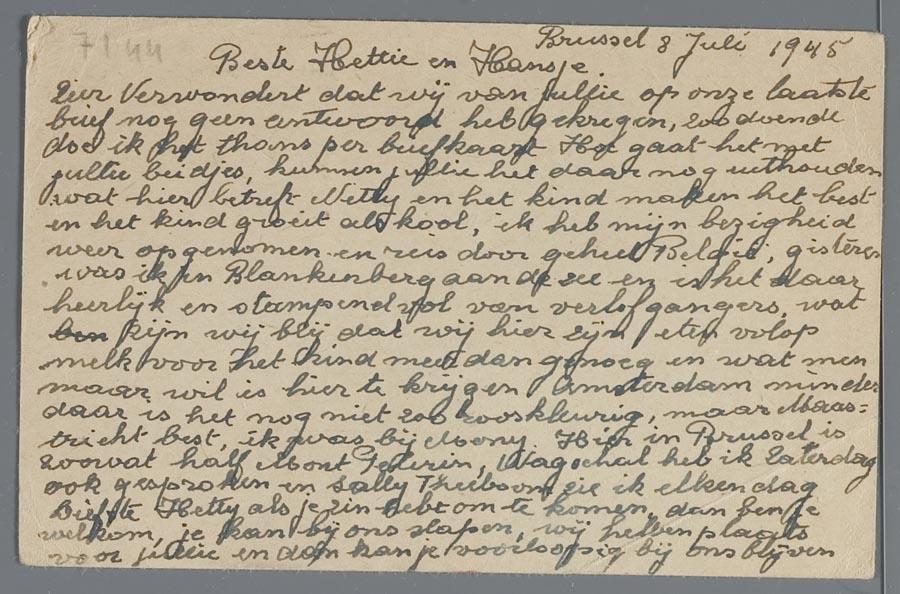 7144
Brussel 8 Juli 1945
Beste Hettie en Hansje
Zeer Verwondert dat wij van jullie op onze laatste
brief nog geen antwoord heb gekregen, zoodoende
doe ik het thans per briefkaart Hoe gaat het met
jullie beidjes, kunnen jullie het daar nog uithouden
wat hier betreft Netty en het kind maken het best
en het kind groeit als kool, ik heb mijn bezigheid
weer opgenomen en reis door geheel België, gisteren
was ik in Blankenberg aan de zee en is het daar
heerlijk en stampend vol van verlofgangers, wat
ben zijn wij blij dat wij hier zijn eten volop
melk voor het kind meer dan genoeg en wat men
maar wil is hier te krijgen Amsterdam minder
daar is het nog niet zoo rooskleurig, maar Maas=
tricht best, ik was bij Mony. Hier in Brussel is
zoowat half Mont Pelerin, Wagschal heb ik Zaterdag
ook gesproken en Sally zie ik elken dag
Hetty als je zin hebt om te komen, dan ben je
welkom, je kan bij ons slapen, wij hebben plaats
voor jullie en dan kan je voorloopig bij ons blijven